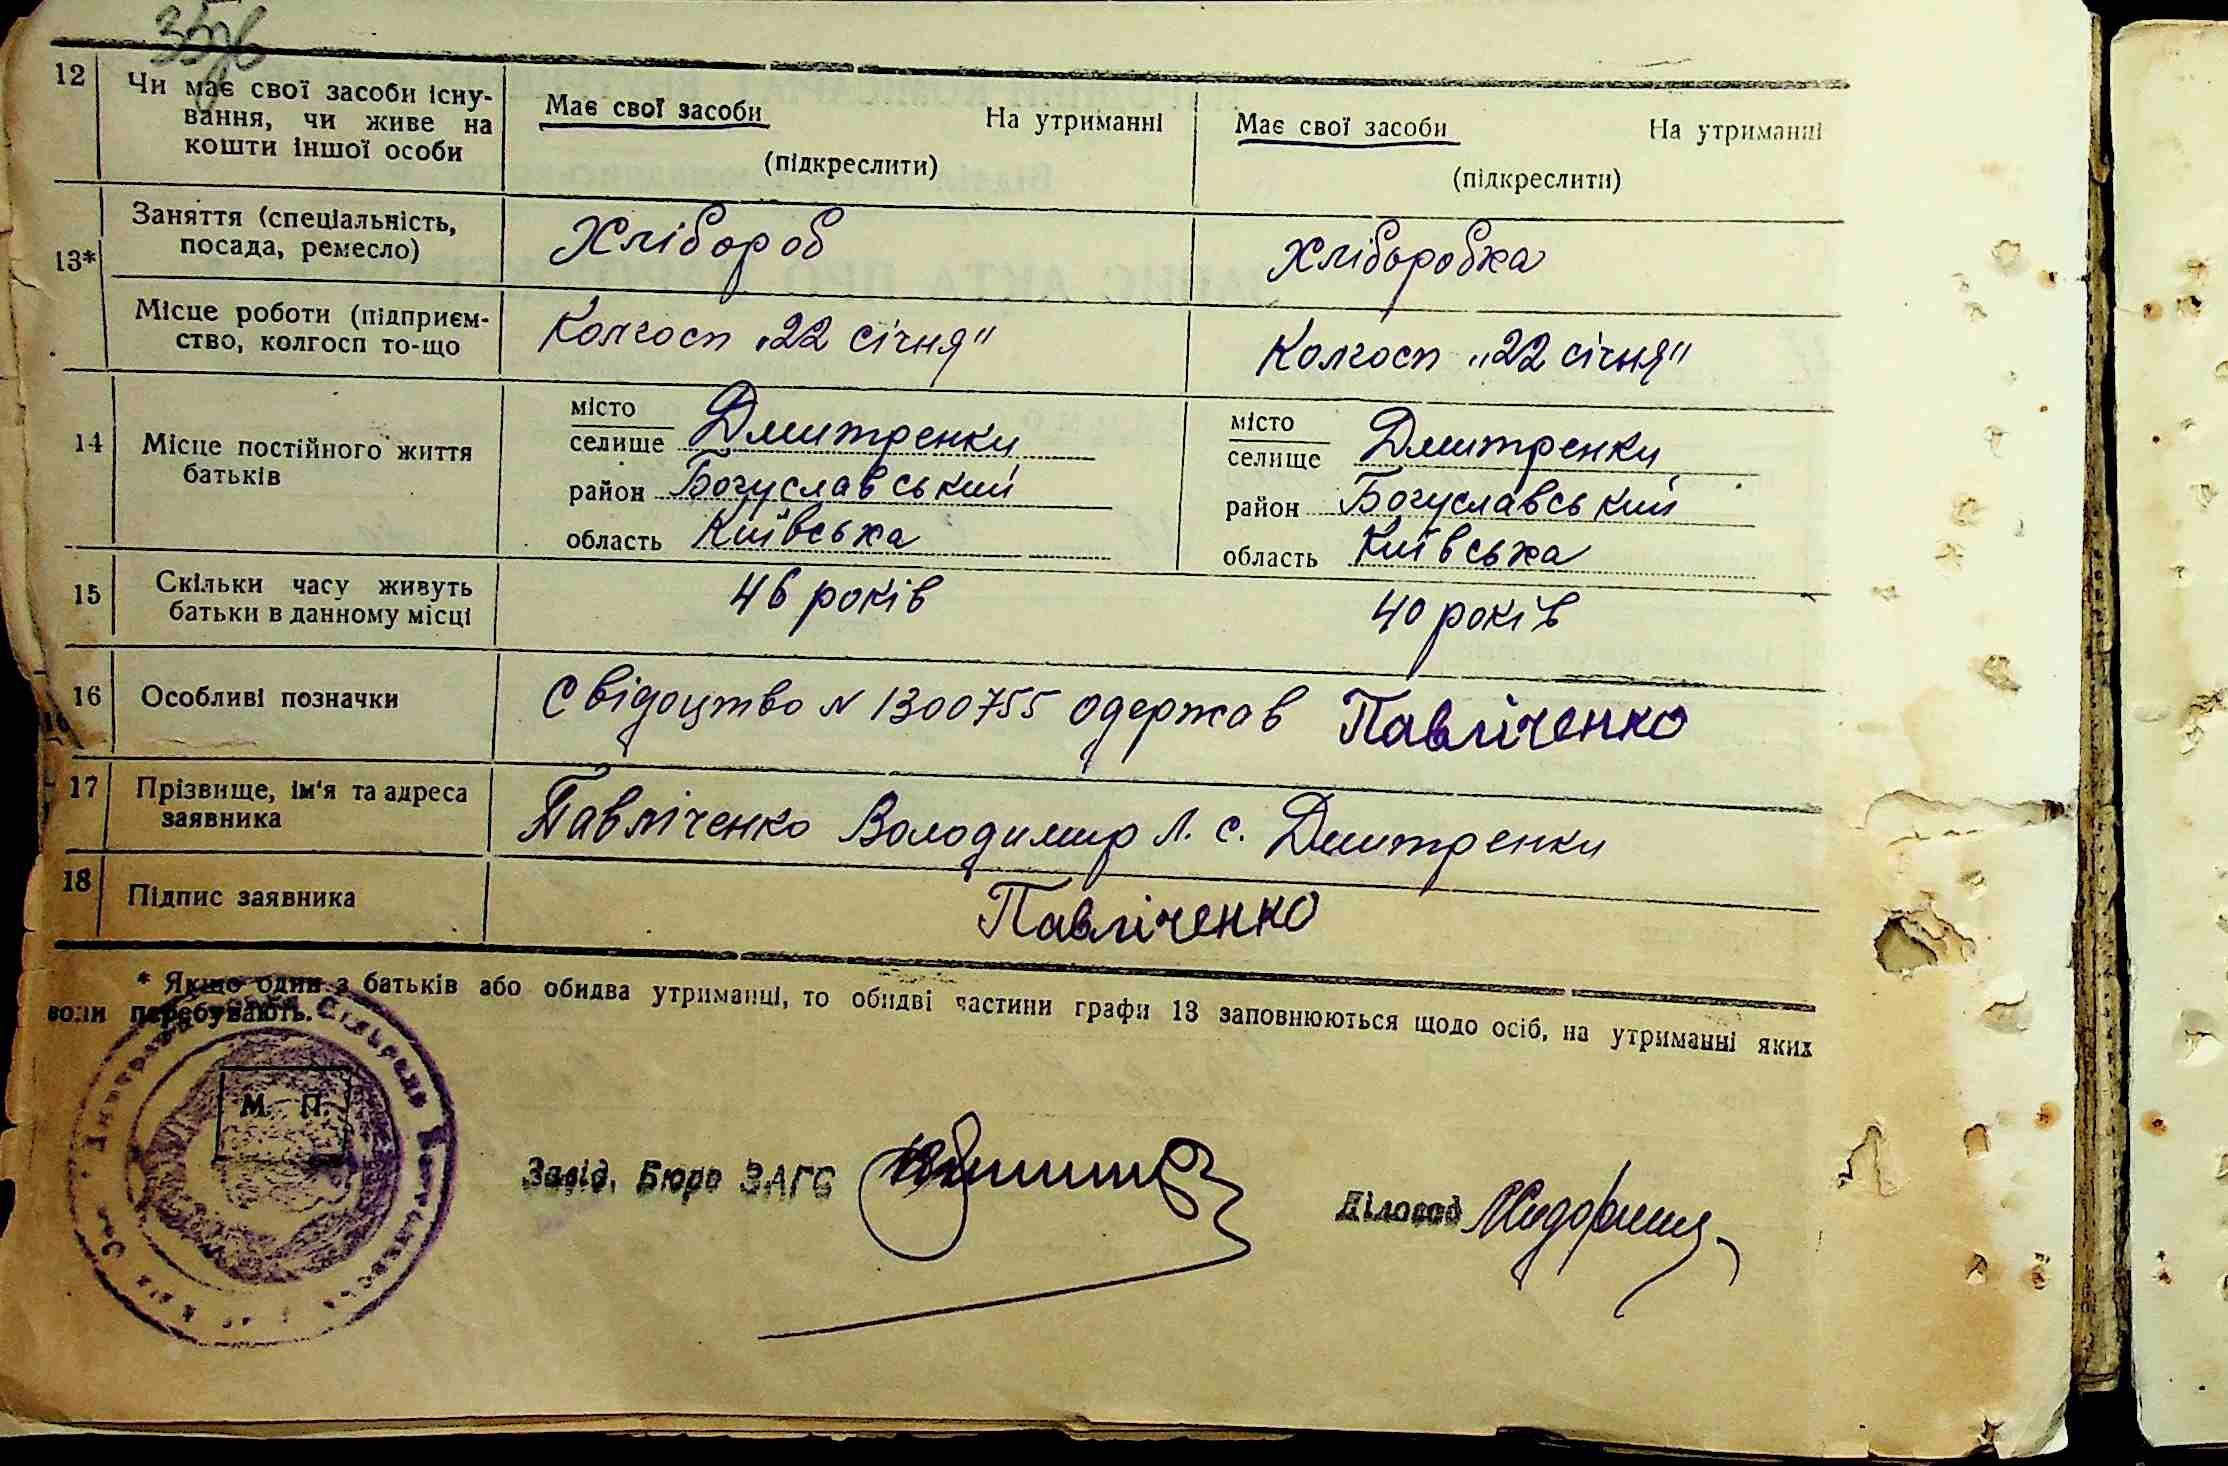 12 Чи має свої засоби існу-
вання, чи живе на
кошти іншої особи
Має свої засоби На утриманні
(підкреслити)
Має свої засоби На утриманні
(підкреслити)
13* Заняття (спеціальність,
посада, ремесло)
Хлібороб
Хліборобка
Місце роботи (підприєм-
ство, колгосп то-що
Колгосп „22 січня"
Колгосп „22 січня"
14 Місце постійного життя
батьків
місто
селище Дмитренки
район Богуславський
область Київська
місто
селище Дмитренки
район Богуславський
область Київська
15 Скільки часу живуть
батьки в данному місці
46 років
40 років
16 Особливі позначки
Свідоцтво № 1300755 одержав Павліченко
17 Прізвище, ім'я та адреса
заявника
Павліченко Володимир Л. с. Дмитренки
18 Підпис заявника
Павліченко
* Якщо один з батьків або обидва утриманці, то обидві частини графи 13 заповнюються щодо осіб, на утриманні яких
вони перебувають.
М. П.
Завід. Бюро ЗАГС
Діловод